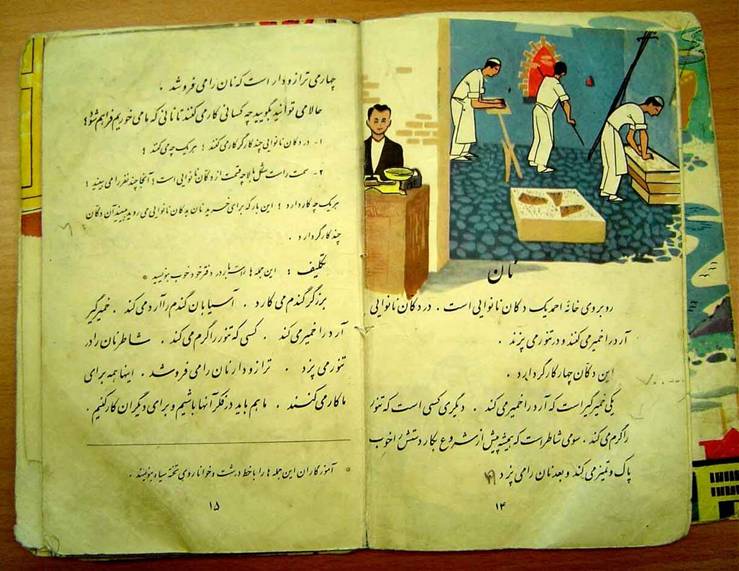 نان
روبروی خانهٔ احمد یک دکان نانوایی است . در دکان نانوایی
آرد را خمیر می کنند و در تنور می پزند .
این دکان چهار کارگر دارد .
یکی خمیرگیر است که آرد را خمیر می کند . دیگری کسی است که تنور
را گرم می کند . سومی شاطر است که همیشه پیش از شروع بکار دستش را خوب
پاک و تمیز می کند و بعد نان را می پزد
۱۴
چهارمی ترازودار است که نان را می فروشد .
حالا می توانید بگویید چه کسانی کار می کنند تا نانی که ما می خوریم فراهم شود ؟
۱- در دکان نانوایی چند کارگر کار می کنند ؛ هر یک چه می کند ؟
۲- سمت راست شکل بالا چه قسمت از دکان نانوایی است ؟ آنجا چند نفر را می بینید ؟
هر یک چه کار دارد ؟ این بار که برای خریدن نان به دکان نانوایی می روید ببینید آن دکان
چند کارگر دارد .
تکلیف : این جمله ها را در دفتر خود خوب بنویسید .
برزگر گندم می کارد . آسیابان گندم را آرد می کند . خمیرگیر
آرد را خمیر می کند . کسی که تنور را گرم می کند . شاطر نان را در
تنور می پزد . ترازودار نان را می فروشد . اینها همه برای
ما کار می کنند . ما هم باید در فکر آنها باشیم و برای دیگران کار کنیم .
آموزگاران این جمله ها را با خط درشت و خوانا روی تخته سیاه بنویسند .
۱۵